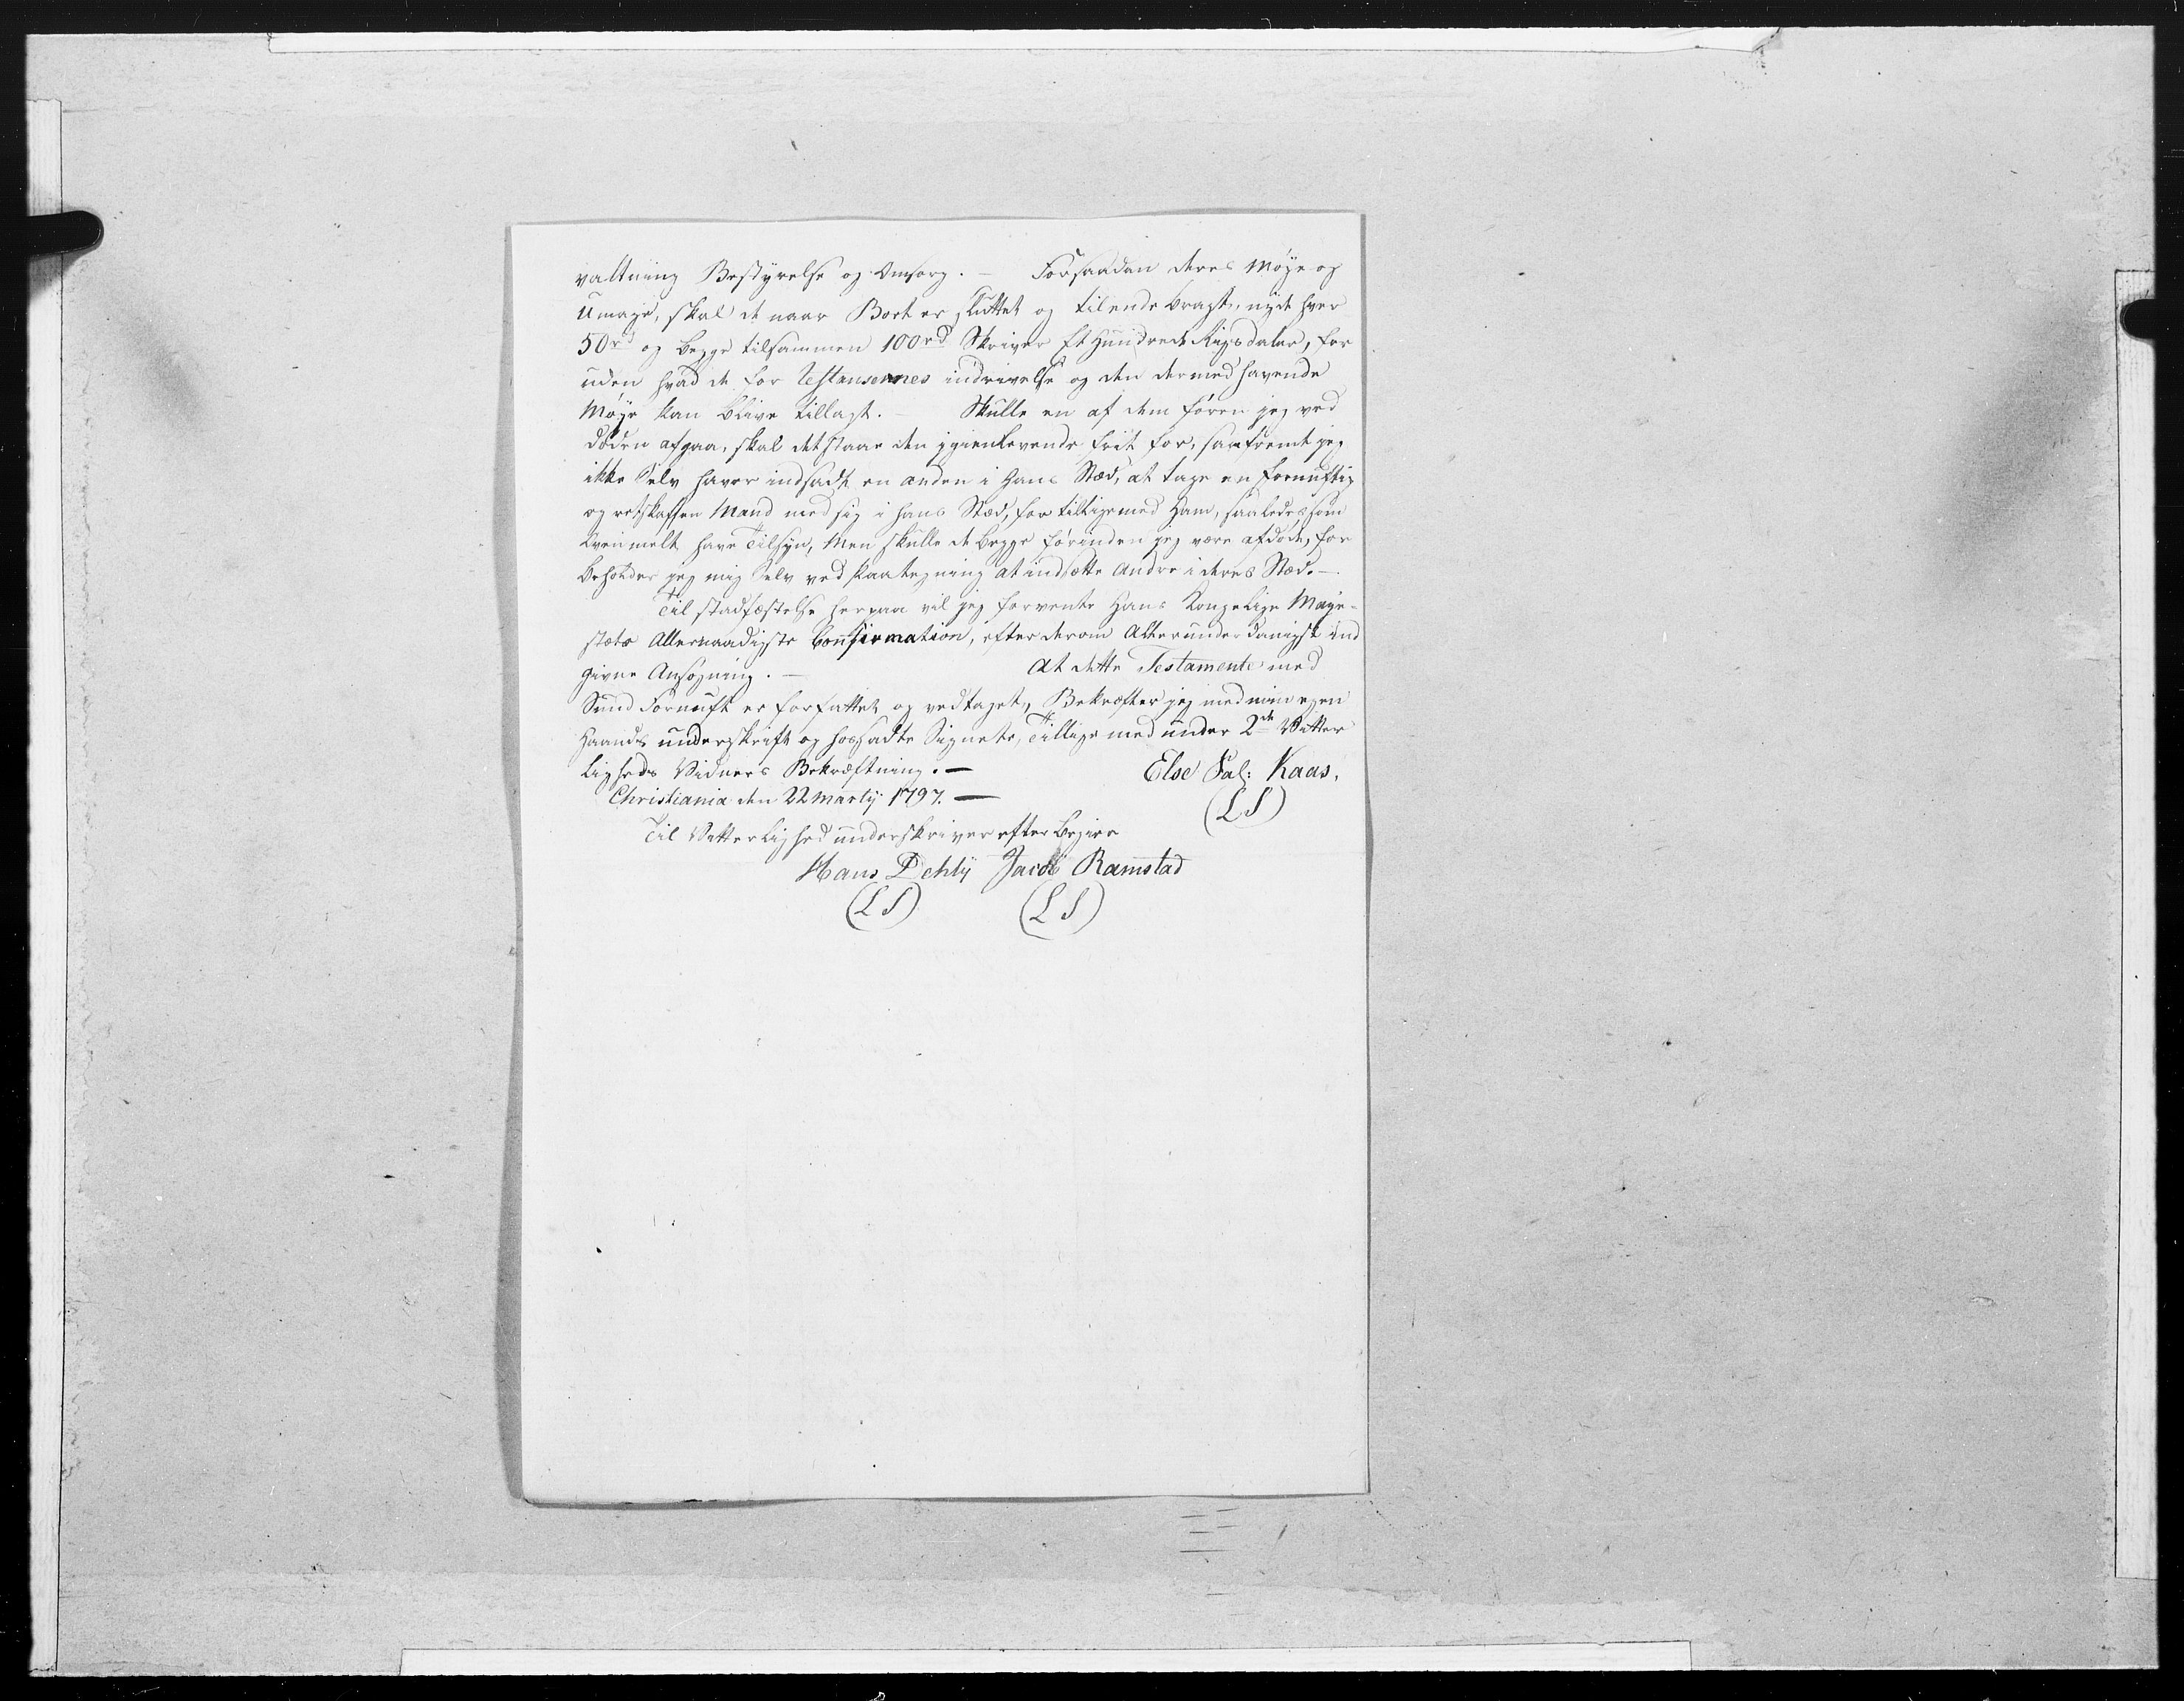 valtning Bestyrelse og Omsorg. – For saadan deres Møye og
Umage, skal de naar Boet er sluttet og tilendebragt, nyde hver
50rd og begge tilsammen 100rd Skriver Et Hundrede Rigsdaler, for
uden hvad de for Restansernes indrivelse og den dermed havende
Møye kan blive tillagt. – Skulle en af dem føren jeg ved
døden afgaa, skal det staae den igienlevende frit for, saafremt jeg
ikke Selv haver indsadt en anden i Hans Stæd, at tage en fornuftig
og retskaffen Mand med sig i hans Stæd, for tilligemed Ham, saaledes som
ovenmelt have Tilsyn, Men skulle de begge førinden jeg være afdøde, for
beholder jeg mig Selv ved Paategning at indsætte Andre i deres Stæd. –
Til stadfæstelse herpaa vil jeg forvente Hans Kongelige Maye-
stæts Allernaadigste Confirmation, efter derom Allerunderdanigst ind
givne Ansøgning. – At dette Testamente med
Sund Fornuft er forfattet og vedtaget, Bekræfter jeg med min egen
Haands underskrift og hossadte Signete, Tillige med under 2de Vitter
ligheds Vidners Bekræftning. –
Else Sal: Kaas.
Christiania den 22 Martij 1797. –
(LS)
Til Vitterlighed underskriver efter begiær
Hans Dehly Jacob Ramstad
(LS) (LS)